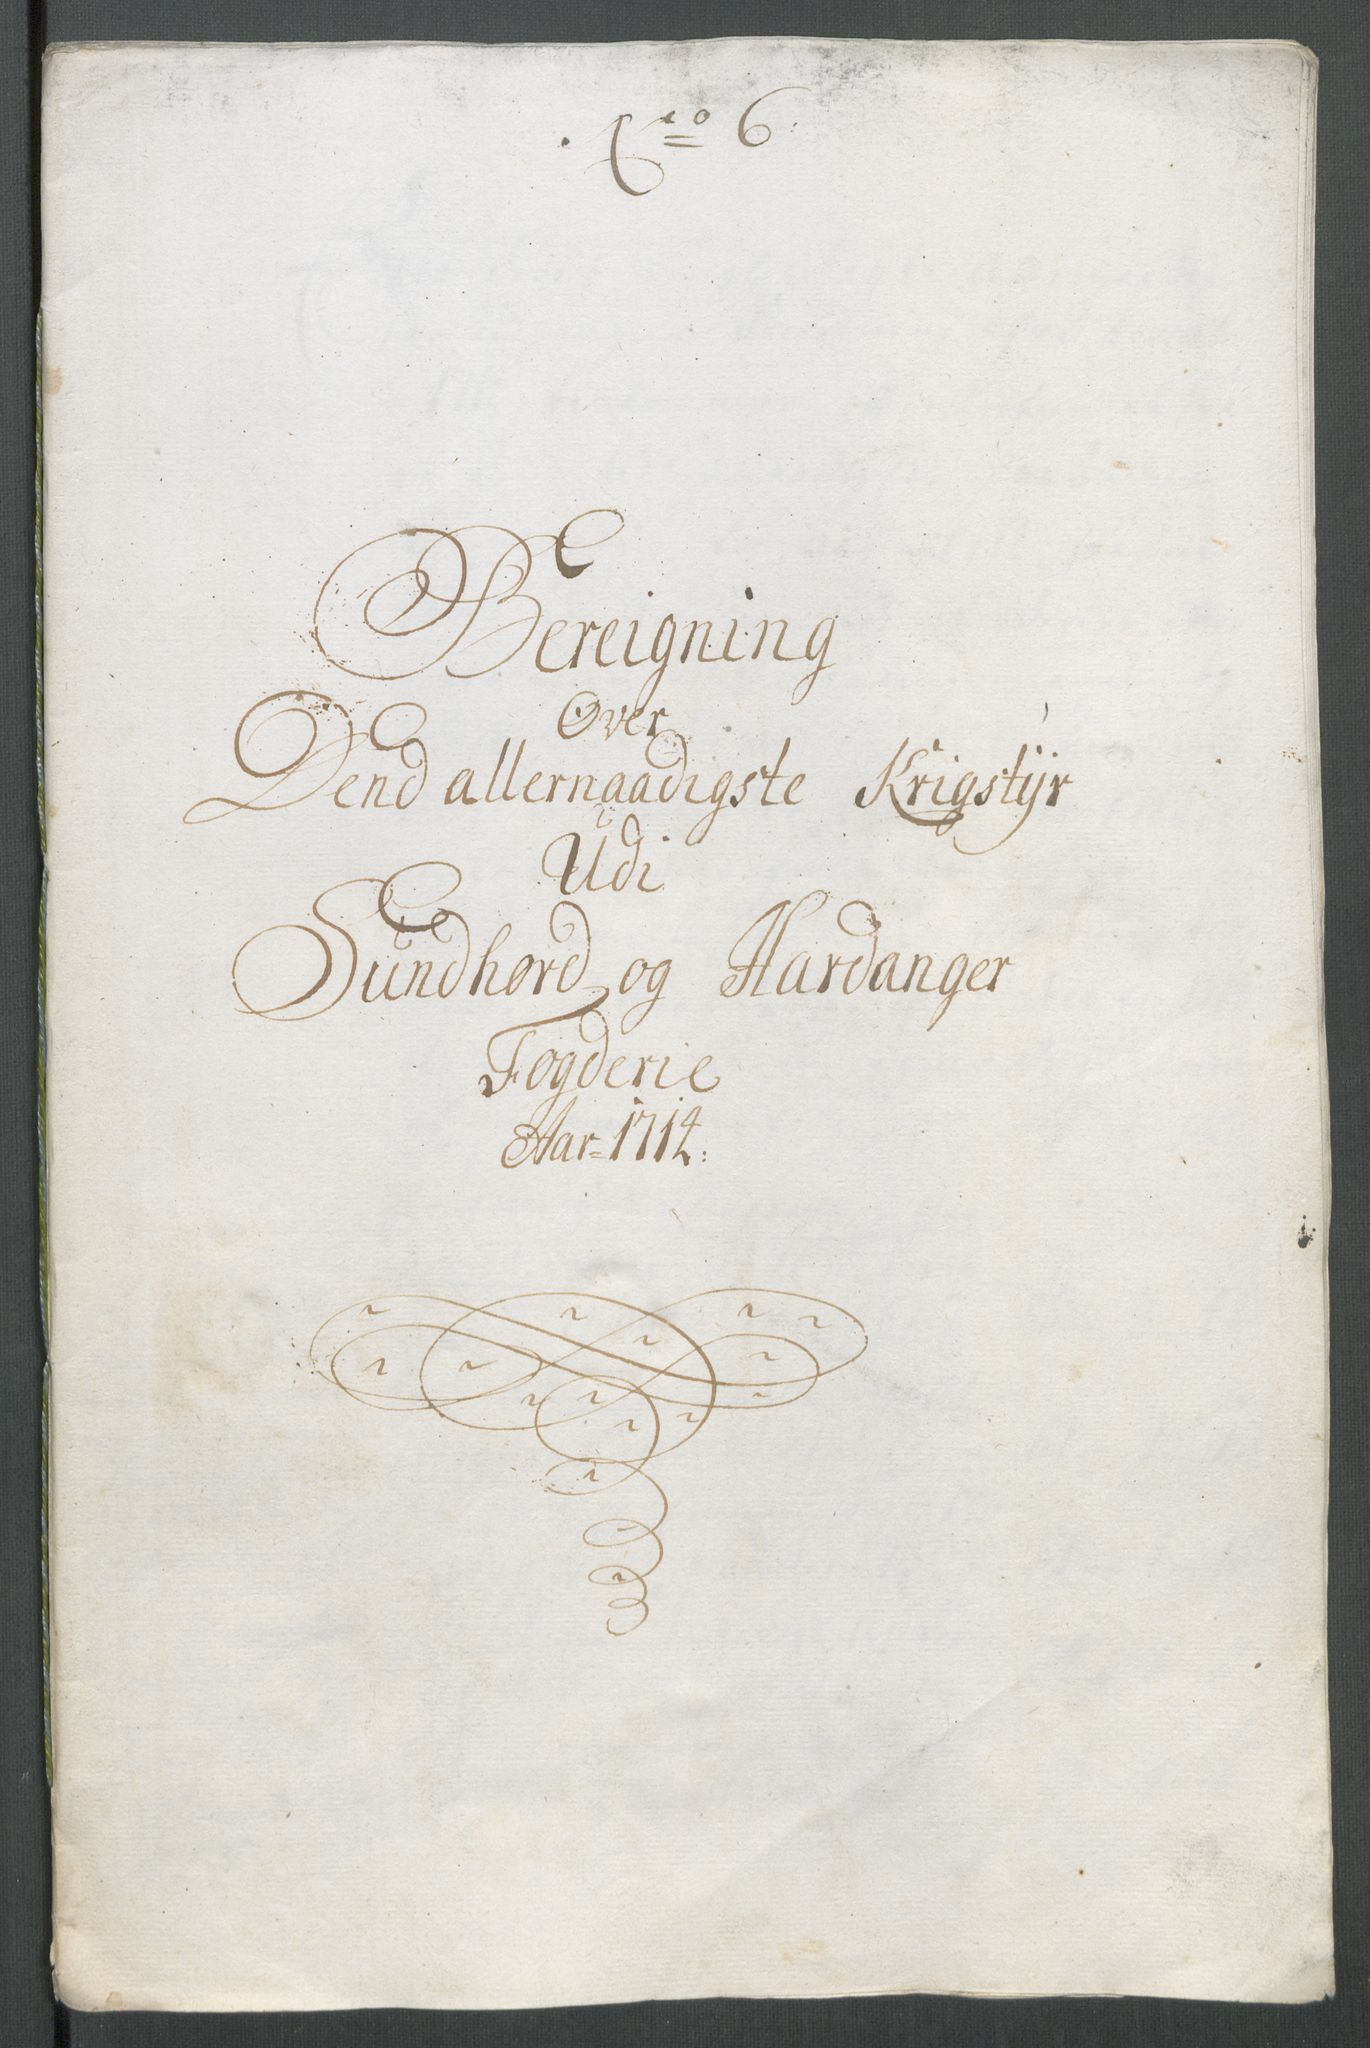 No 6.
Bereigning
Over
Dend allernaadigste Krigstÿr
Udi
Sundhord og Hardanger
Fogderie
Aar 1714: